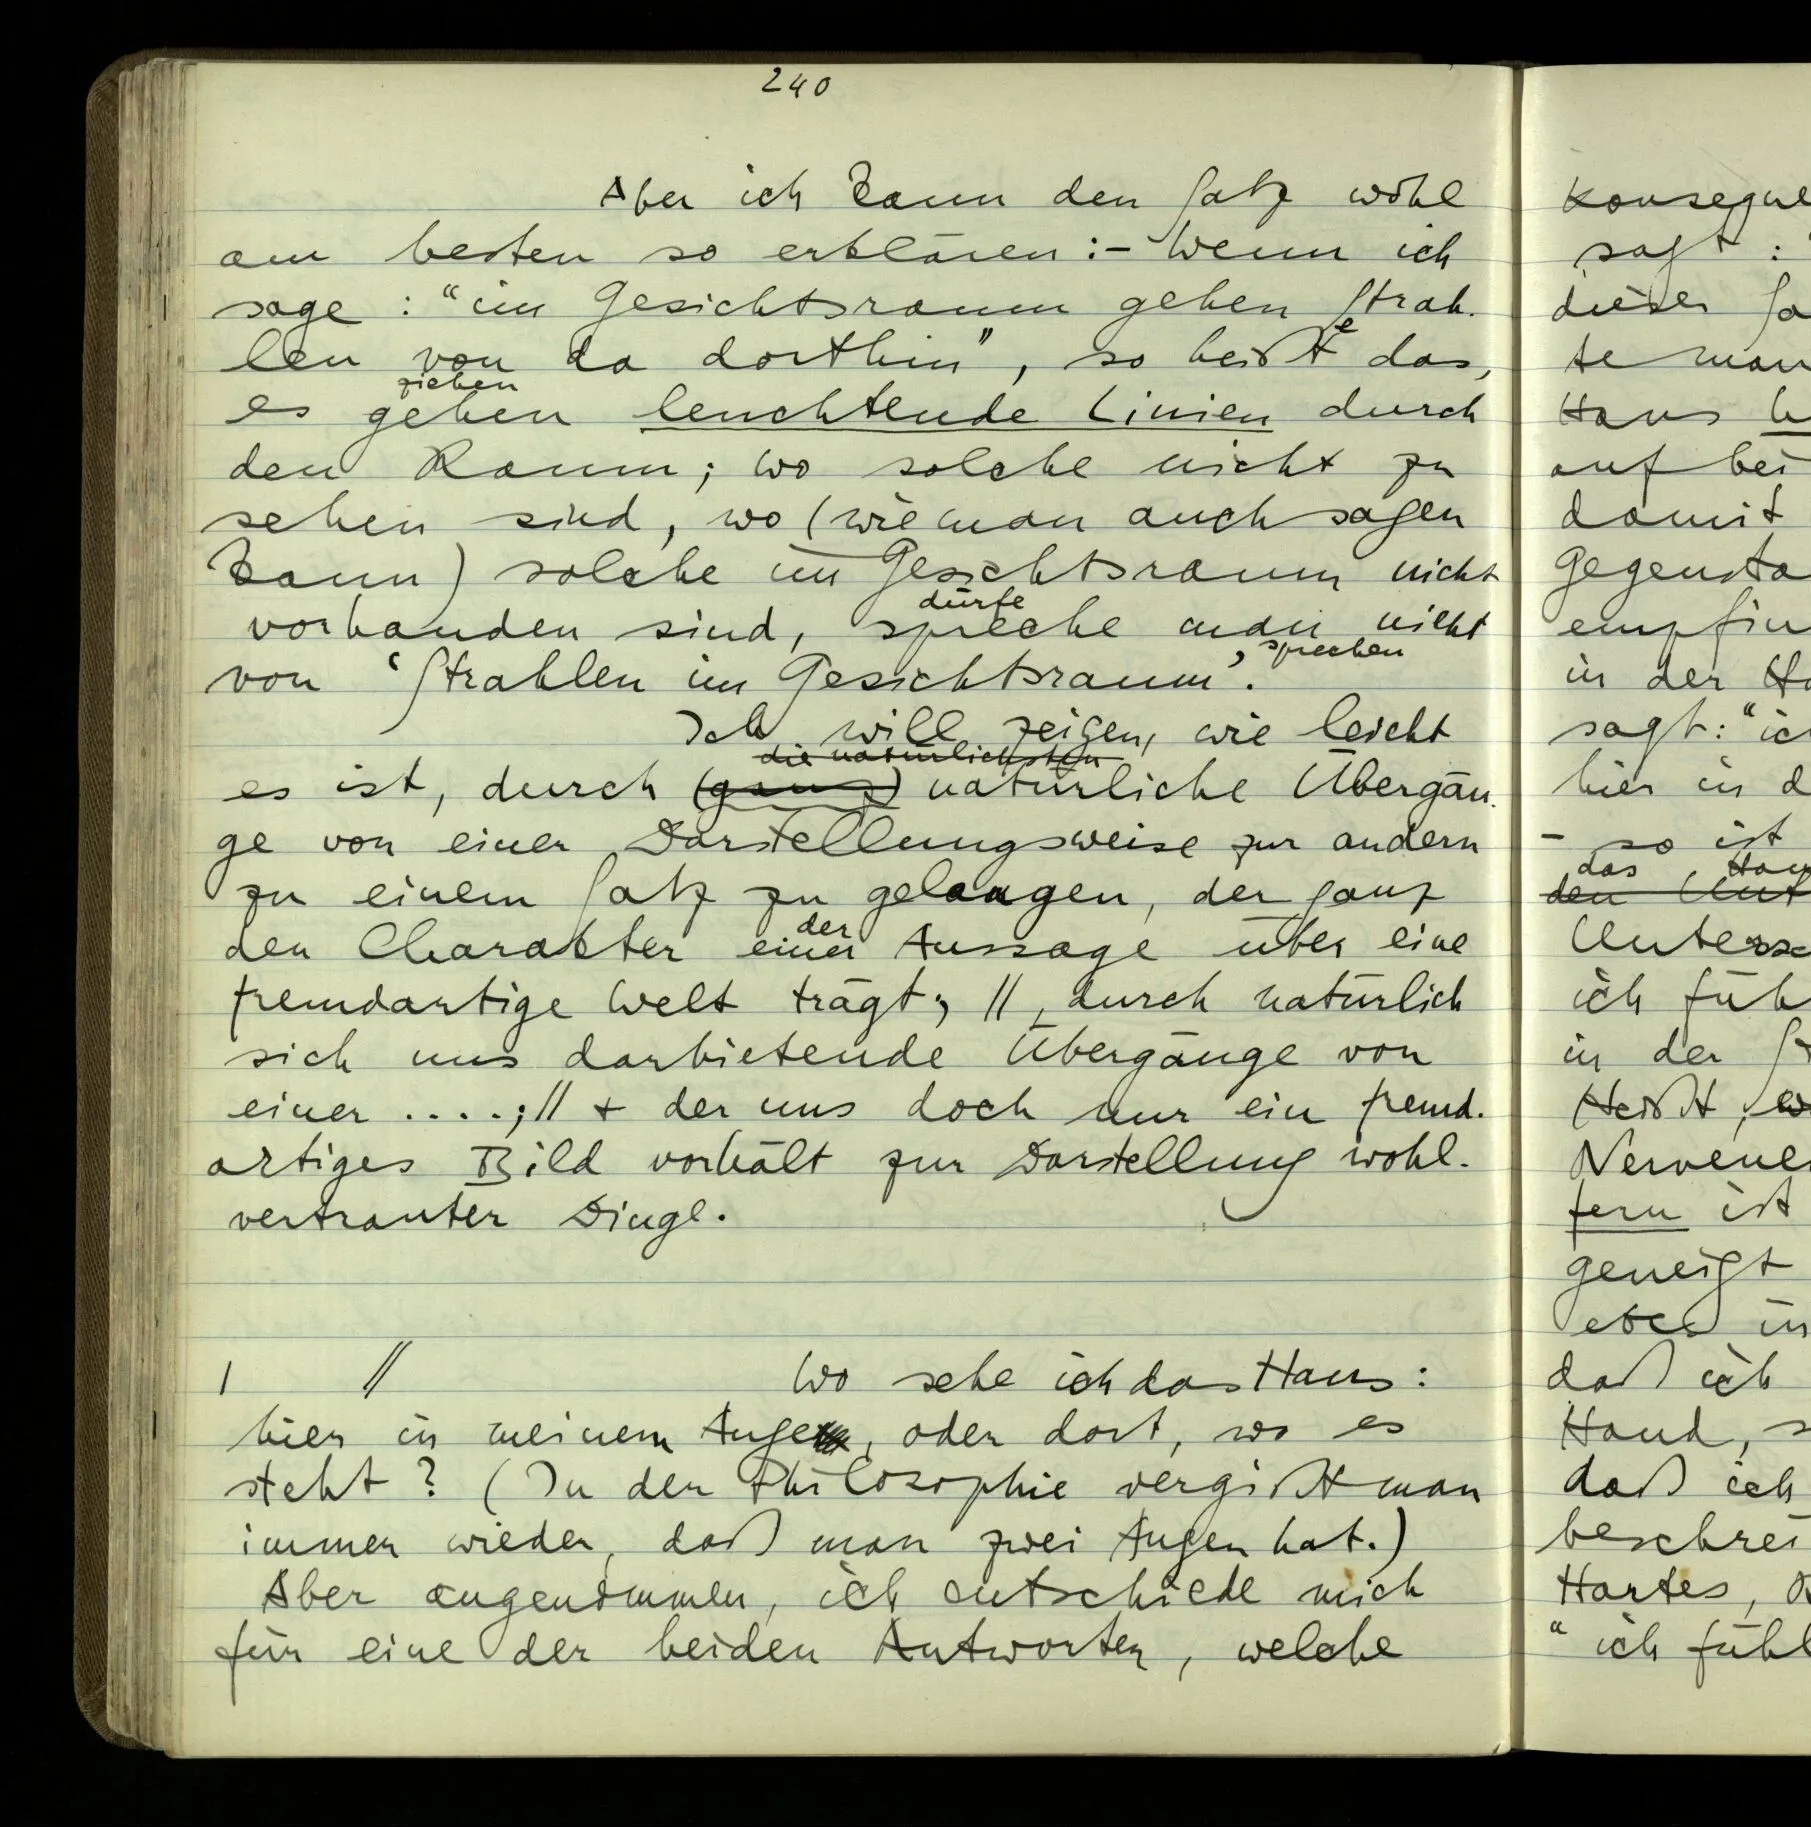 240
Aber ich kann den Satz wohl
am besten so erklären:– Wenn ich
sage : "im Gesichtsraum gehen Strah-
len von da dorthin", so heißt e das,
ziehen
es gehen leuchtende Linien durch
den Raum; wo solche nicht zu
sehen sind, wo (wie man auch sagen
kann) solche im Gesichtsraum nicht
dürfe
vorhanden sind, spreche man nicht
von 'Strahlen im Gesichtsraum'. sprechen
Ich will zeigen, wie leicht
die natürlichsten
es ist, durch (ganz) natürliche Übergän-
ge von einer Darstellungsweise zur andern
zu einem Satz zu gelangen, der ganz
der
den Charakter einer Aussage über eine
fremdartige Welt trägt; //, durch natürlich
sich uns darbietende Übergänge von
einer ....;// + der uns doch nur ein fremd-
artiges Bild vorhält zur Darstellung wohl-
vertrauter Dinge.
/ // Wo sehe ich das Haus:
hier in meinem Auge, oder dort, wo es
steht? (In der Philosophie vergißt man
immer wieder, daß man zwei Augen hat.)
Aber angenommen, ich entschiede mich
für eine der beiden Antworten, welche
Konseque
sagt :
dieser Sa
te man
Haus
auf bei
damit
Gegensta
empfin
in der Ha
sagt: "ic
hier in d
– so ist
das Hau
den Unt
Untersc
ich füh
in der
Heißt, w
Nervene
fern ist
geneigt
in
daß ich
Hand, s
daß ich
beschrei
Hartes,
"ich fühl